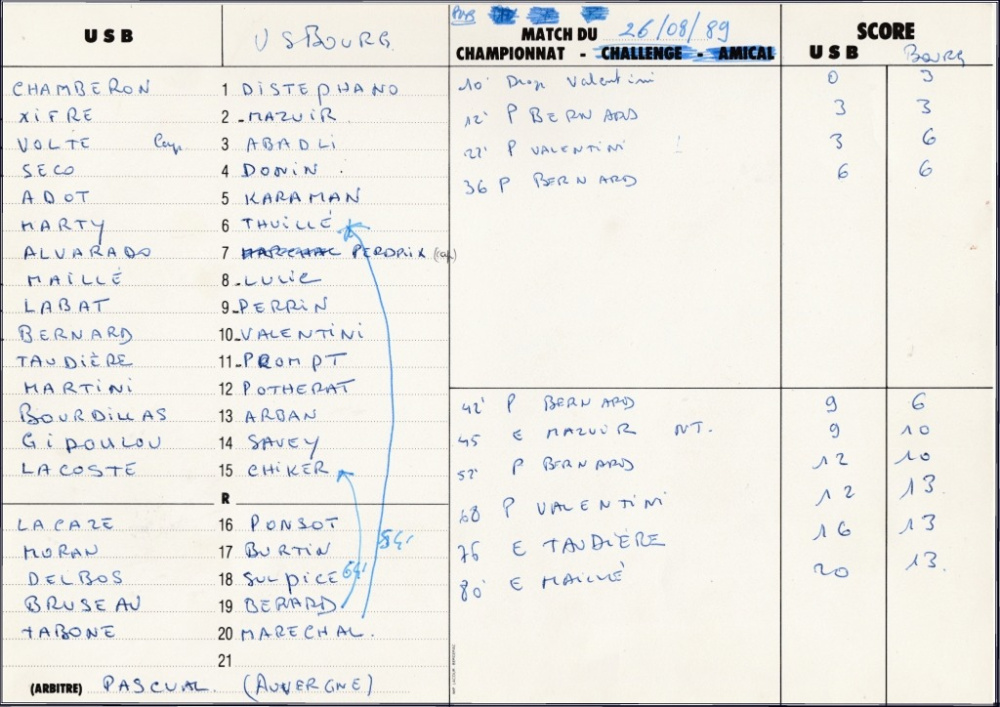 USB US BOURG.
MATCH DU 26/08/89
CHAMPIONNAT - CHALLENGE - AMICAL
SCORE
USB BOURG
CHAMBERON 1 DISTEPHANO
XIFRE 2 - MAZUIR
VOLTE Cap. 3 ABADLI
SECO 4 DONIN .
ADOT 5 KARAMAN
MARTY 6 THUILLÉ
ALVARADO 7 MARCHAL PERDRIX (cap)
MAILLÉ 8 - LULIC
LABAT 9 - PERRIN
BERNARD 10 - VALENTINI
TAUDIÈRE 11 - PROMPT
MARTINI 12 POTHERAT
BOURDILLAS 13 ARBAN
GIPOULOU 14 SAVEY
LACOSTE 15 CHIKER
R
LACAZE 16 PONSOT
MORAN 17 BURTIN
DELBOS 18 SULPICE
BRUSEAU 19 BERARD
TABONE 20 MARECHAL.
21
64' 54'
(ARBITRE) PASCUAL. (AUVERGNE)
10' Drop Valentini 0 3
12' P BERNARD 3 3
22' P VALENTINI 3 6
36 P BERNARD 6 6
42' P BERNARD 9 6
45 E MAZUIR NT. 9 10
52' P BERNARD 12 10
68 P VALENTINI 12 13
76 E TAUDIÈRE 16 13
80' E MAILLÉ 20 13.